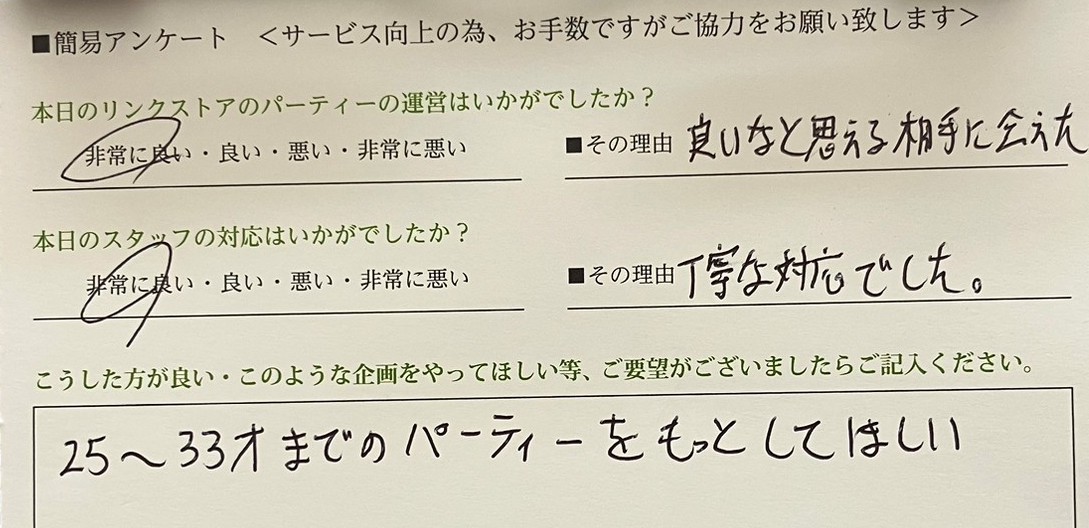 ■簡易アンケート　＜サービス向上の為、お手数ですがご協力をお願い致します＞
本日のリンクストアのパーティーの運営はいかがでしたか？
非常に良い・良い・悪い・非常に悪い　■その理由 良いなと思える相手に会えた
本日のスタッフの対応はいかがでしたか？
非常に良い・良い・悪い・非常に悪い　■その理由 丁寧な対応でした。
こうした方が良い・このような企画をやってほしい等、ご要望がございましたらご記入ください。
25～33才までのパーティーをもっとしてほしい